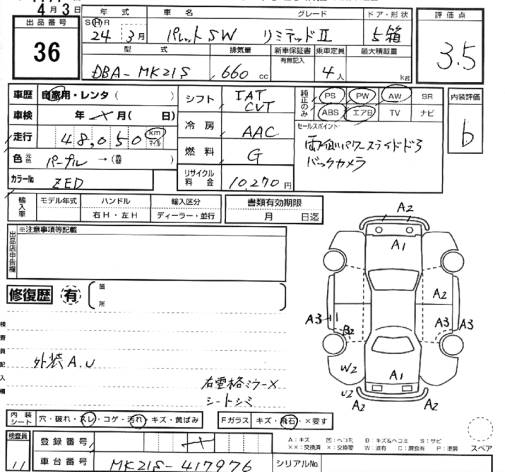 4月3日
出品番号 36
年式 車名 グレード ドア・形状
SHR 24年 3月 パレットSW リミテッドⅡ 5箱
評価点 3.5
型式 排気量 新車保証書 乗車定員 最大積載量
有無記入
DBA-MK21S 660cc 4人 kg
車歴 自家用・レンタ( )
車検 年 月( 日)
走行 48,050 km マイル
色 パープル →( )
カラーNo. ZED
シフト IAT CVT
冷房 AAC
燃料 G
リサイクル料金 10,270円
純正のみ PS PW AW SR
ABS エアB TV ナビ
内装評価 b
セールスポイント
バックカメラ
輸入車 モデル年式 ハンドル 輸入区分
右H・左H ディーラー・並行
書類有効期限
月 日迄
出品店申告欄 ※注意事項等記載
修復歴 有
箇所
検査員記入欄
外装A.U
右電格ミラーX
シートシミ
A2
A1
A2
A3 A3
B2
A2
W2
A1
U2 A2
内装シート 穴・破れ・スレ・コゲ・汚れ・キズ・黄ばみ
Fガラス キズ・飛石・×要す
検査員 11
登録番号
車台番号 MK21S-417976
シリアルNo.
A:キズ U:ヘコミ B:キズ&ヘコミ S:サビ
スペア